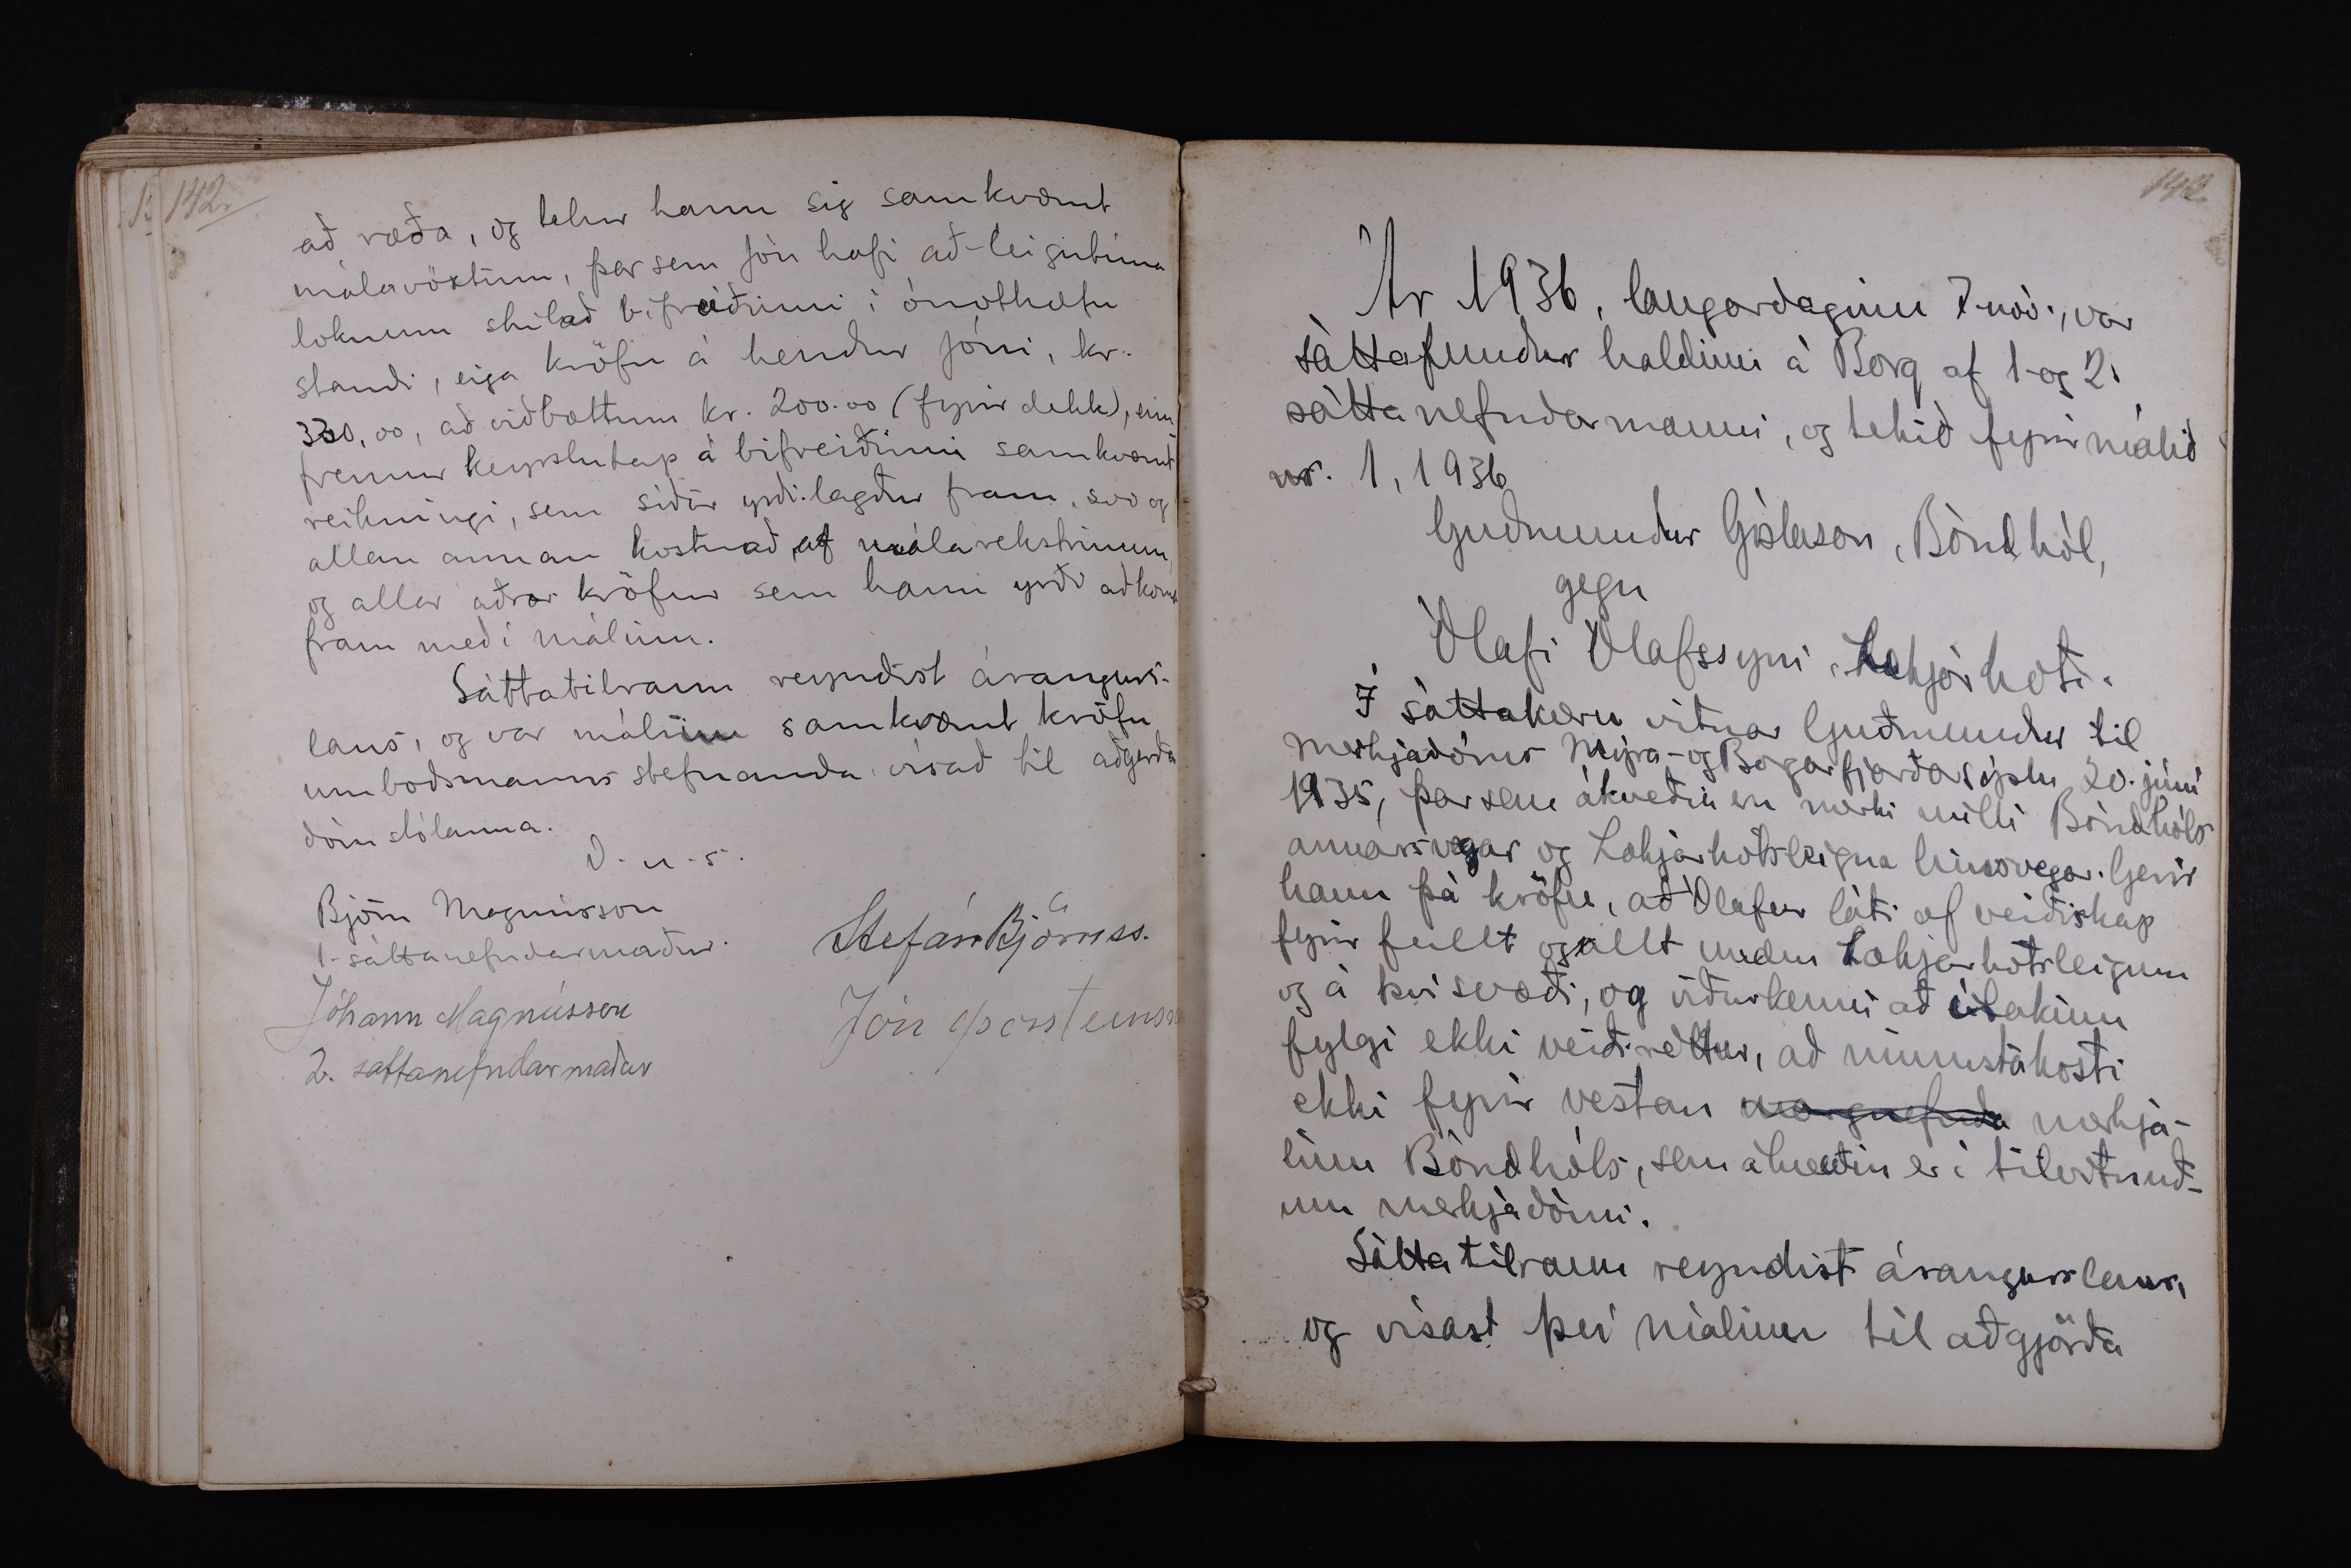 142.
að ræða, og telur hann sig samkvæmt
málavöxtum, þar sem Jón hafi að leigutíma
loknum skilað bifreiðinni í ónothæfu
standi, eiga kröfu á hendur Jóni, kr.
330,00, að viðbættum kr. 200.00 (fyrir dekk), enn
fremur keyrslutap á bifreiðinni samkvæmt
reikningi, sem síðar yrði lagður fram, svo og
allan annan kostnað af málarekstrinum,
og allar aðrar kröfur sem hann yrði að koma
fram með í málinu.
Sáttatilraun reyndist árangurs-
laus, og var málinu samkvæmt kröfu
umboðsmanns stefnanda vísað til aðgerða
dómstólanna.
D. u. s.
Björn Magnússon
1. sáttanefndarmaður.
Stefán Björnss.
Jóhann Magnússon
Jón Þorsteinsson
2. sáttanefndarmaður
143.
Ár 1936, laugardaginn 7. nóv., var
sáttafundur haldinn á Borg af 1. og 2.
sáttanefndarmanni, og tekið fyrir málið
nr. 1, 1936
Guðmundur Gíslason, Bóndhól,
gegn
Ólafi Ólafssyni, Lækjarkoti.
Í sáttakæru vitnar Guðmundur til
merkjadóms Mýra- og Borgarfjarðarsýslu 20. júní
1935, þar sem ákveðin eru merki milli Bóndhóls
annarsvegar og Lækjarkotsleigna hinsvegar. Gerir
hann þá kröfu, að Ólafur láti af veiðiskap
fyrir fullt og allt undan Lækjarkotsleigum
og á því svæði, og viðurkenni að ítakinu
fylgi ekki veiðiréttur, að minnsta kosti
ekki fyrir vestan margnefnda merkja-
línu Bóndhóls, sem ákveðin er í tilvitnuð-
um merkjadómi.
Sáttatilraun reyndist árangurslaus,
og vísast því málinu til aðgjörða